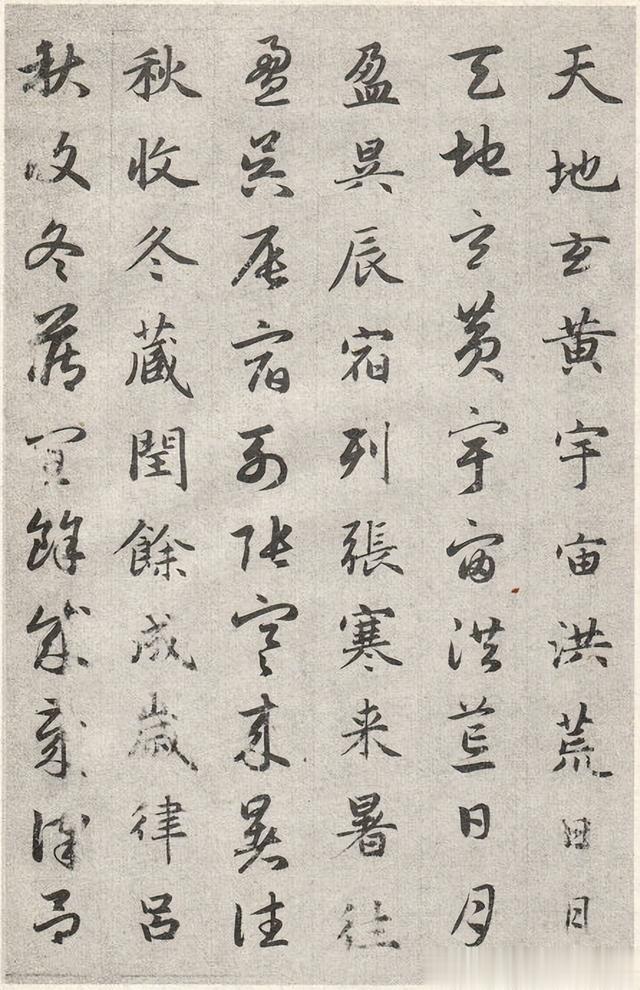 天地玄黃宇宙洪荒日月
天地玄黃宇宙洪荒日月
盈昃辰宿列張寒来暑往
盈昃辰宿列張寒来暑往
秋收冬藏閏餘成歲律呂
秋收冬藏閏餘成歲律呂